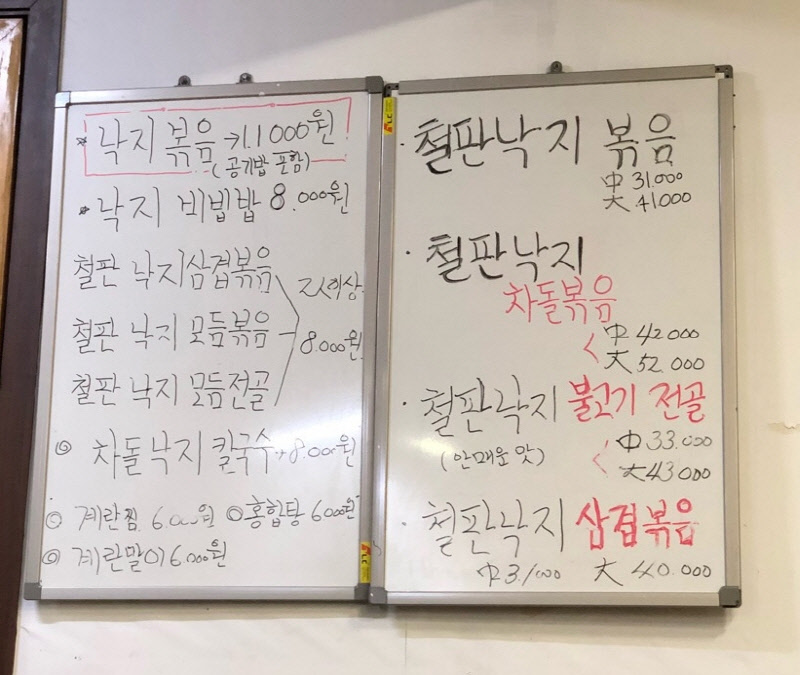 * 낙지 볶음 → 11.000원
(공기밥 포함)
* 낙지 비빔밥 8.000원
철판 낙지삼겹볶음
2人이상
철판 낙지 모듬볶음
8.000원
철판 낙지 모듬전골
◎ 차돌낙지 칼국수 → 8.000원
◎ 계란찜 6.000원 ◎ 홍합탕 6000원
◎ 계란말이 6.000원
· 철판낙지 볶음
中 31.000
大 41000
· 철판낙지
차돌볶음
< 中 42000
大 52.000
· 철판낙지 불고기 전골
(안매운 맛) < 中 33.000
大 43000
· 철판낙지 삼겹볶음
中 31000 大 40.000